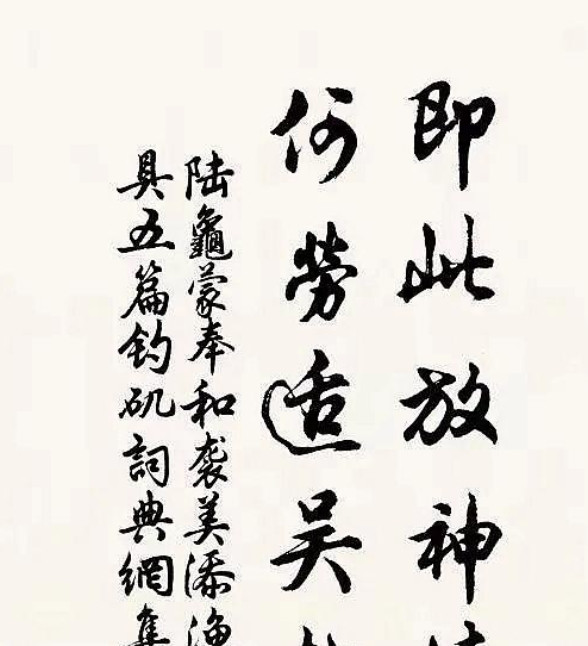 即此放神
何勞适吴
陆龜蒙奉和袭美添渔
具五篇钓矶詞典網集